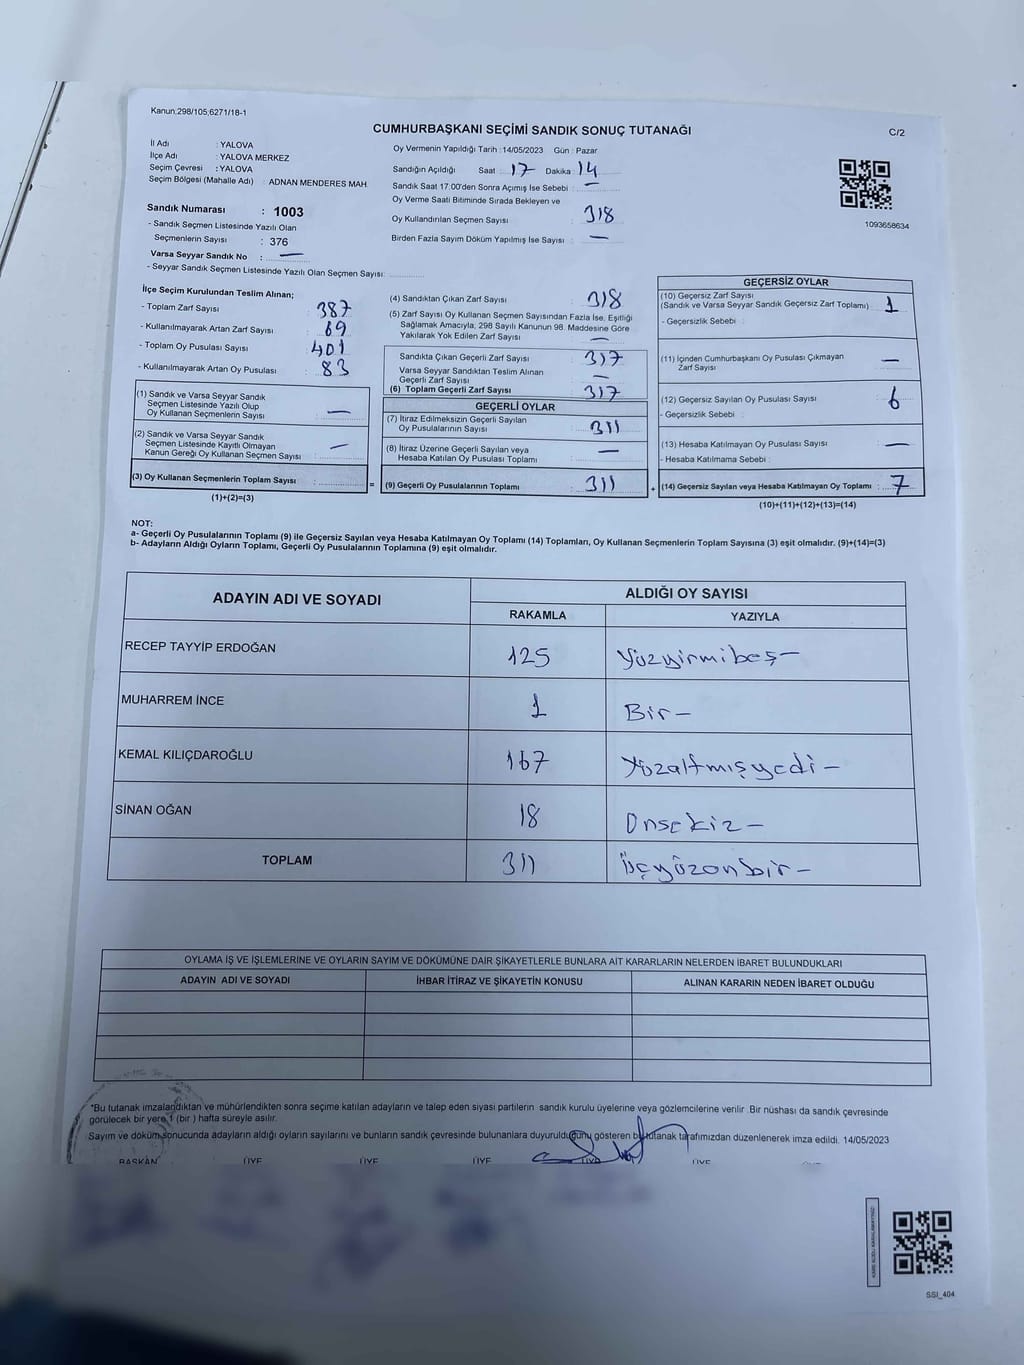 Kanun:298/105;6271/18-1
CUMHURBAŞKANI SEÇİMİ SANDIK SONUÇ TUTANAĞI
C/2
İl Adı : YALOVA
İlçe Adı : YALOVA MERKEZ
Seçim Çevresi : YALOVA
Seçim Bölgesi (Mahalle Adı) : ADNAN MENDERES MAH.
Sandık Numarası : 1003
- Sandık Seçmen Listesinde Yazılı Olan
Seçmenlerin Sayısı : 376
Varsa Seyyar Sandık No : —
- Seyyar Sandık Seçmen Listesinde Yazılı Olan Seçmen Sayısı:
Oy Vermenin Yapıldığı Tarih :14/05/2023 Gün : Pazar
Sandığın Açıldığı Saat : 17 Dakika : 14
Sandık Saat 17:00'den Sonra Açımış İse Sebebi : —
Oy Verme Saati Bitiminde Sırada Bekleyen ve
Oy Kullandırılan Seçmen Sayısı : 318
Birden Fazla Sayım Döküm Yapılmış İse Sayısı : —
1093658634
İlçe Seçim Kurulundan Teslim Alınan;
- Toplam Zarf Sayısı : 387
- Kullanılmayarak Artan Zarf Sayısı : 69
- Toplam Oy Pusulası Sayısı : 401
- Kullanılmayarak Artan Oy Pusulası : 83
(1) Sandık ve Varsa Seyyar Sandık
Seçmen Listesinde Yazılı Olup
Oy Kullanan Seçmenlerin Sayısı : —
(2) Sandık ve Varsa Seyyar Sandık
Seçmen Listesinde Kayıtlı Olmayan
Kanun Gereği Oy Kullanan Seçmen Sayısı : —
(3) Oy Kullanan Seçmenlerin Toplam Sayısı :
(1)+(2)=(3)
(4) Sandıktan Çıkan Zarf Sayısı : 318
(5) Zarf Sayısı Oy Kullanan Seçmen Sayısından Fazla İse, Eşitliği
Sağlamak Amacıyla, 298 Sayılı Kanunun 98. Maddesine Göre
Yakılarak Yok Edilen Zarf Sayısı : —
Sandıkta Çıkan Geçerli Zarf Sayısı : 317
Varsa Seyyar Sandıktan Teslim Alınan
Geçerli Zarf Sayısı : —
(6) Toplam Geçerli Zarf Sayısı : 317
GEÇERLİ OYLAR
(7) İtiraz Edilmeksizin Geçerli Sayılan
Oy Pusulalarının Sayısı : 311
(8) İtiraz Üzerine Geçerli Sayılan veya
Hesaba Katılan Oy Pusulası Toplamı : —
= (9) Geçerli Oy Pusulalarının Toplamı : 311
GEÇERSİZ OYLAR
(10) Geçersiz Zarf Sayısı
(Sandık ve Varsa Seyyar Sandık Geçersiz Zarf Toplamı) : 1
- Geçersizlik Sebebi :
(11) İçinden Cumhurbaşkanı Oy Pusulası Çıkmayan
Zarf Sayısı : —
(12) Geçersiz Sayılan Oy Pusulası Sayısı : 6
- Geçersizlik Sebebi :
(13) Hesaba Katılmayan Oy Pusulası Sayısı : —
- Hesaba Katılmama Sebebi :
+ (14) Geçersiz Sayılan veya Hesaba Katılmayan Oy Toplamı : 7
(10)+(11)+(12)+(13)=(14)
NOT:
a- Geçerli Oy Pusulalarının Toplamı (9) ile Geçersiz Sayılan veya Hesaba Katılmayan Oy Toplamı (14) Toplamları, Oy Kullanan Seçmenlerin Toplam Sayısına (3) eşit olmalıdır. (9)+(14)=(3)
b- Adayların Aldığı Oyların Toplamı, Geçerli Oy Pusulalarının Toplamına (9) eşit olmalıdır.
ADAYIN ADI VE SOYADI ALDIĞI OY SAYISI
RAKAMLA YAZIYLA
RECEP TAYYİP ERDOĞAN 125 Yüzyirmibeş—
MUHARREM İNCE 1 Bir—
KEMAL KILIÇDAROĞLU 167 Yüzaltmışyedi—
SİNAN OĞAN 18 Onsekiz—
TOPLAM 311 Üçyüzonbir—
OYLAMA İŞ VE İŞLEMLERİNE VE OYLARIN SAYIM VE DÖKÜMÜNE DAİR ŞİKAYETLERLE BUNLARA AİT KARARLARIN NELERDEN İBARET BULUNDUKLARI
ADAYIN ADI VE SOYADI İHBAR İTİRAZ VE ŞİKAYETİN KONUSU ALINAN KARARIN NEDEN İBARET OLDUĞU
*Bu tutanak imzalandıktan ve mühürlendikten sonra seçime katılan adayların ve talep eden siyasi partilerin sandık kurulu üyelerine veya gözlemcilerine verilir .Bir nüshası da sandık çevresinde
görülecek bir yere 1 (bir ) hafta süreyle asılır.
Sayım ve döküm sonucunda adayların aldığı oyların sayılarını ve bunların sandık çevresinde bulunanlara duyurulduğunu gösteren bu tutanak tarafımızdan düzenlenerek imza edildi. 14/05/2023
BAŞKAN ÜYE ÜYE ÜYE ÜYE ÜYE
SSI_404